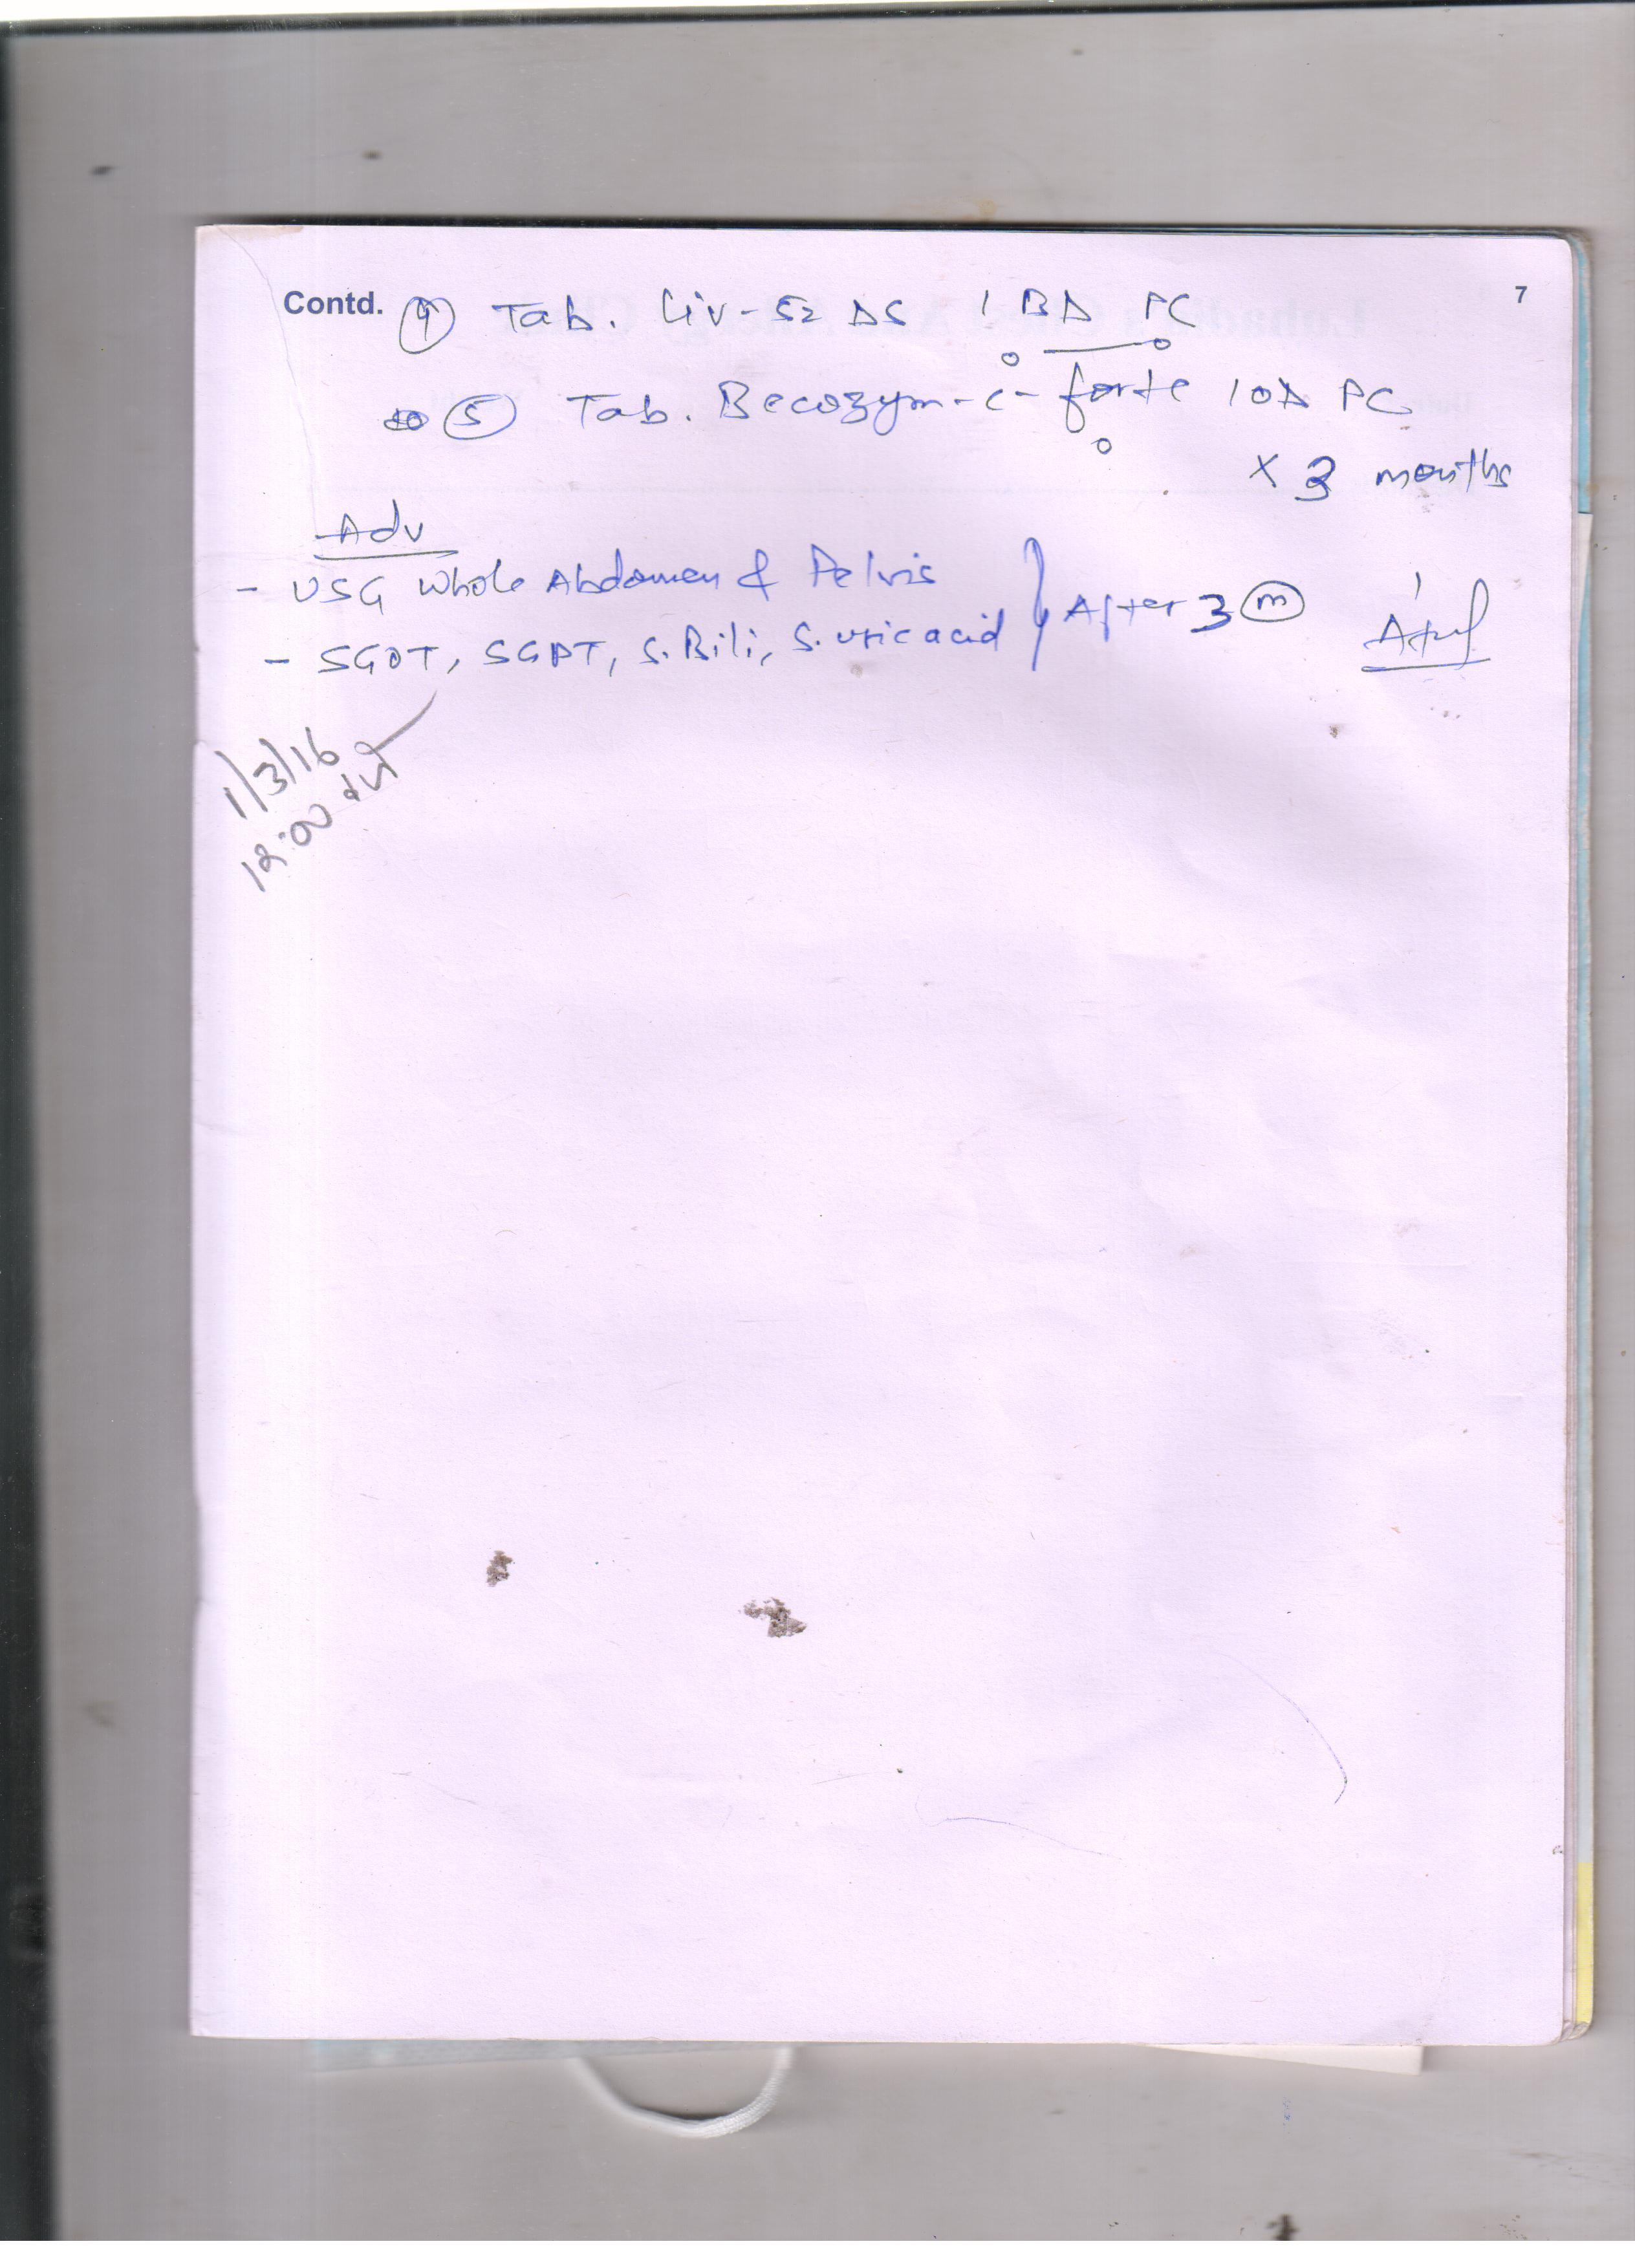 Contd. ④ Tab. Liv-52 DS 1 BD PC 7
⑤ Tab. Becozym-c-forte 1 OD PC
x 3 months
Adv
- USG Whole Abdomen & Pelvis } After 3 ⓜ
- SGOT, SGPT, S. Bili, S. uric acid
1/3/16